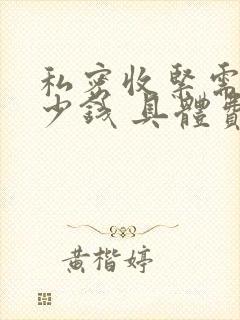 私密收緊需
少錢 具體費
黃楷婷